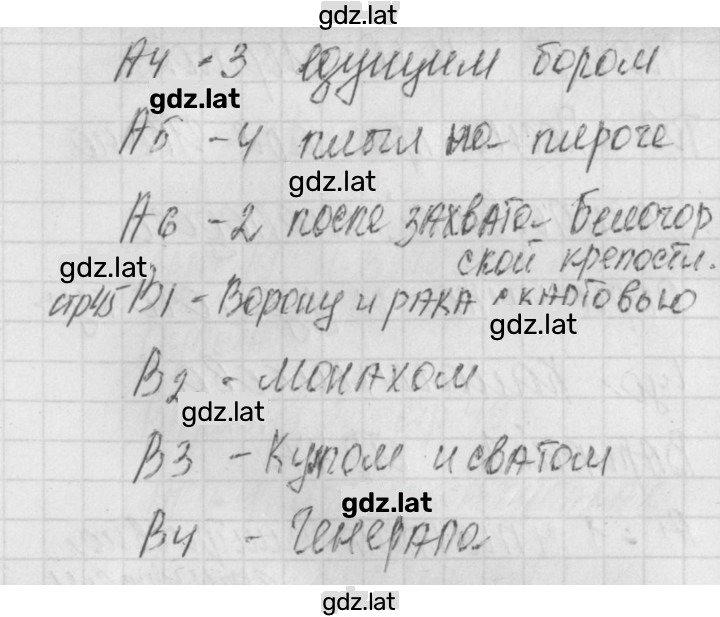 gdz.lat
А4 - 3 едущим бором
gdz.lat
А5 - 4 плыл на пироге
gdz.lat
А6 - 2 после захвата Белогор
ской крепости.
gdz.lat
стр45 В1 - Ворону и рака с кадговью
gdz.lat
В2 - Монахом
gdz.lat
В3 - Кумом и сватом
gdz.lat
В4 - Генерала
gdz.lat